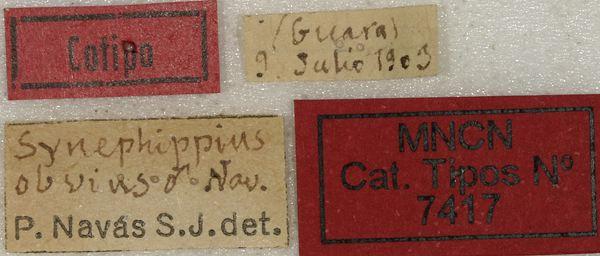 Cotipo
(Guara)
9. Julio 1903
Synephippius
obvius ♂ Nav.
P. Navás S.J. det.
MNCN
Cat. Tipos Nº
7417